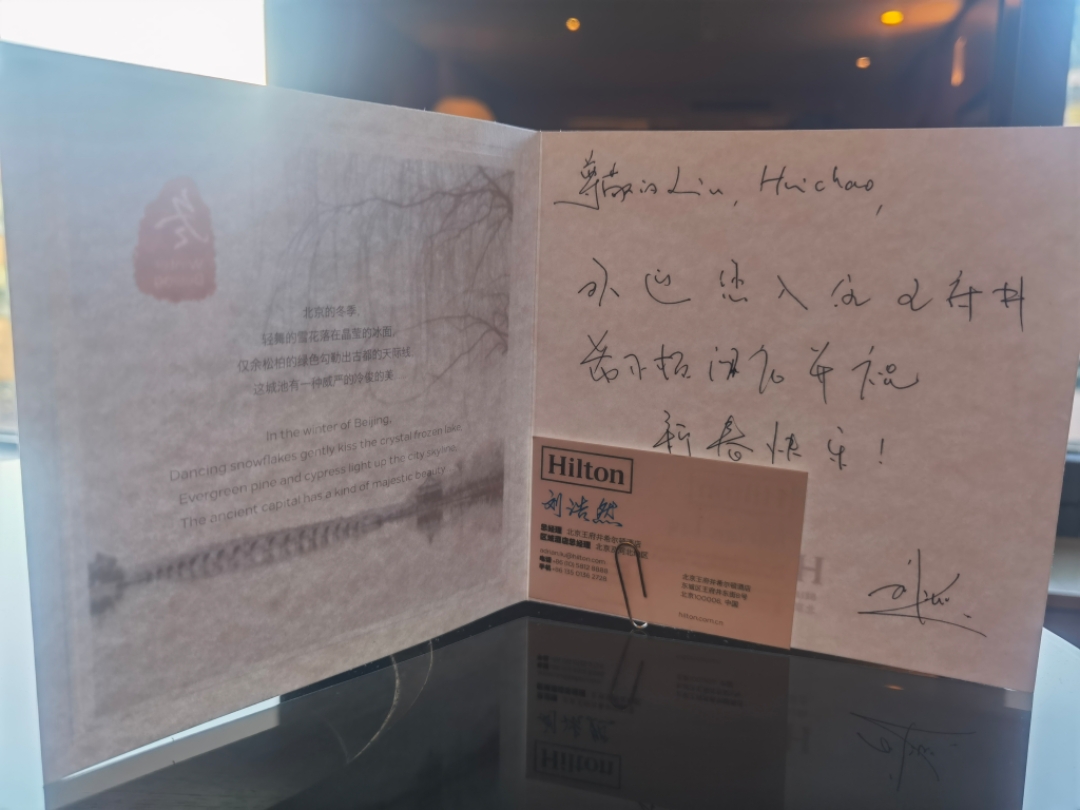 冬
北京的冬季,
轻舞的雪花落在晶莹的冰面,
仅余松柏的绿色勾勒出古都的天际线,
这城池有一种威严的冷傲的美
In the winter of Beijing,
Dancing snowflakes gently kiss the crystal frozen lake
Evergreen pine and cypress light up the city skyline
The ancient capital has a kind of majestic beauty
尊敬的 Liu, Huichao,
欢迎您入住王府井
希尔顿酒店并祝
新春快乐!
Hilton
刘浩然
总经理 北京王府井希尔顿酒店
区域酒店总经理
hilton.com.cn
北京王府井希尔顿酒店
东城区王府井东街8号
北京 100006, 中国